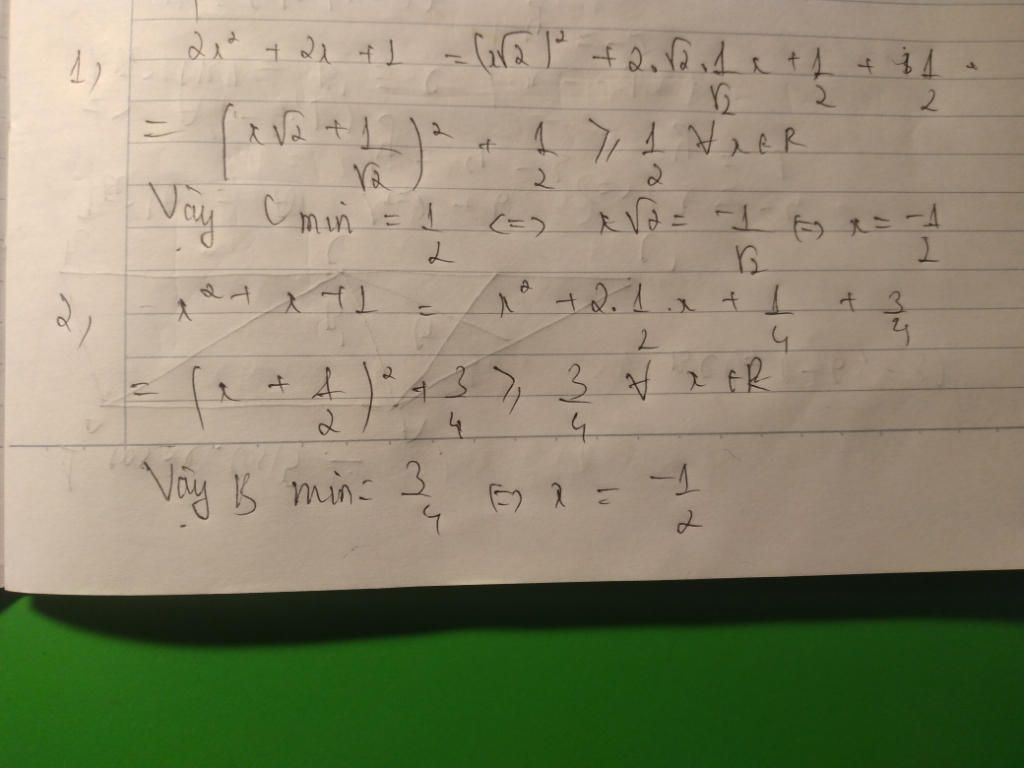 1, 2x² + 2x + 1 = (x√2)² + 2.√2.1/√2 x + 1/2 + 1/2
= (x√2 + 1/√2)² + 1/2 ⩾ 1/2 ∀ x ∈ R
Vậy C min = 1/2 <=> x√2 = -1/√2 <=> x = -1/2
2, x² + x + 1 = x² + 2.1/2.x + 1/4 + 3/4
= (x + 1/2)² + 3/4 ⩾ 3/4 ∀ x ∈ R
Vậy B min = 3/4 <=> x = -1/2